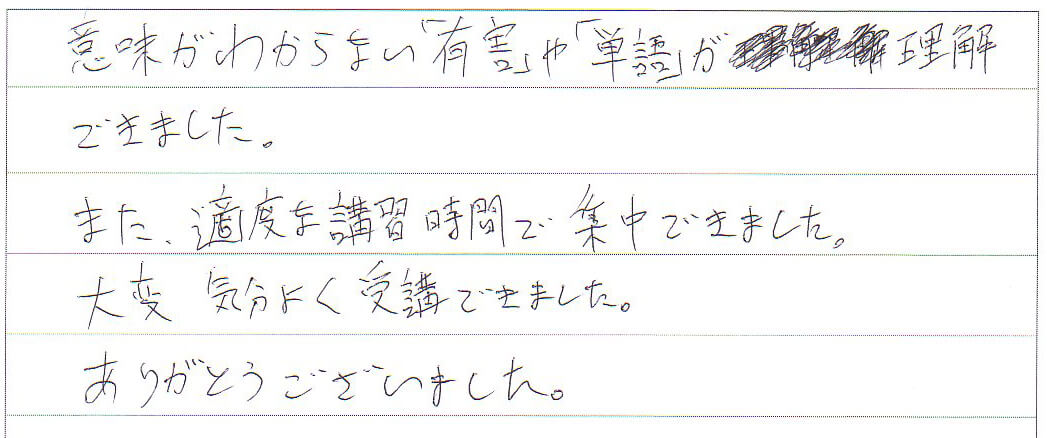 意味がわからない「有害」や「単語」が理解
できました。
また、適度な講習時間で集中できました。
大変 気分よく受講できました。
ありがとうございました。